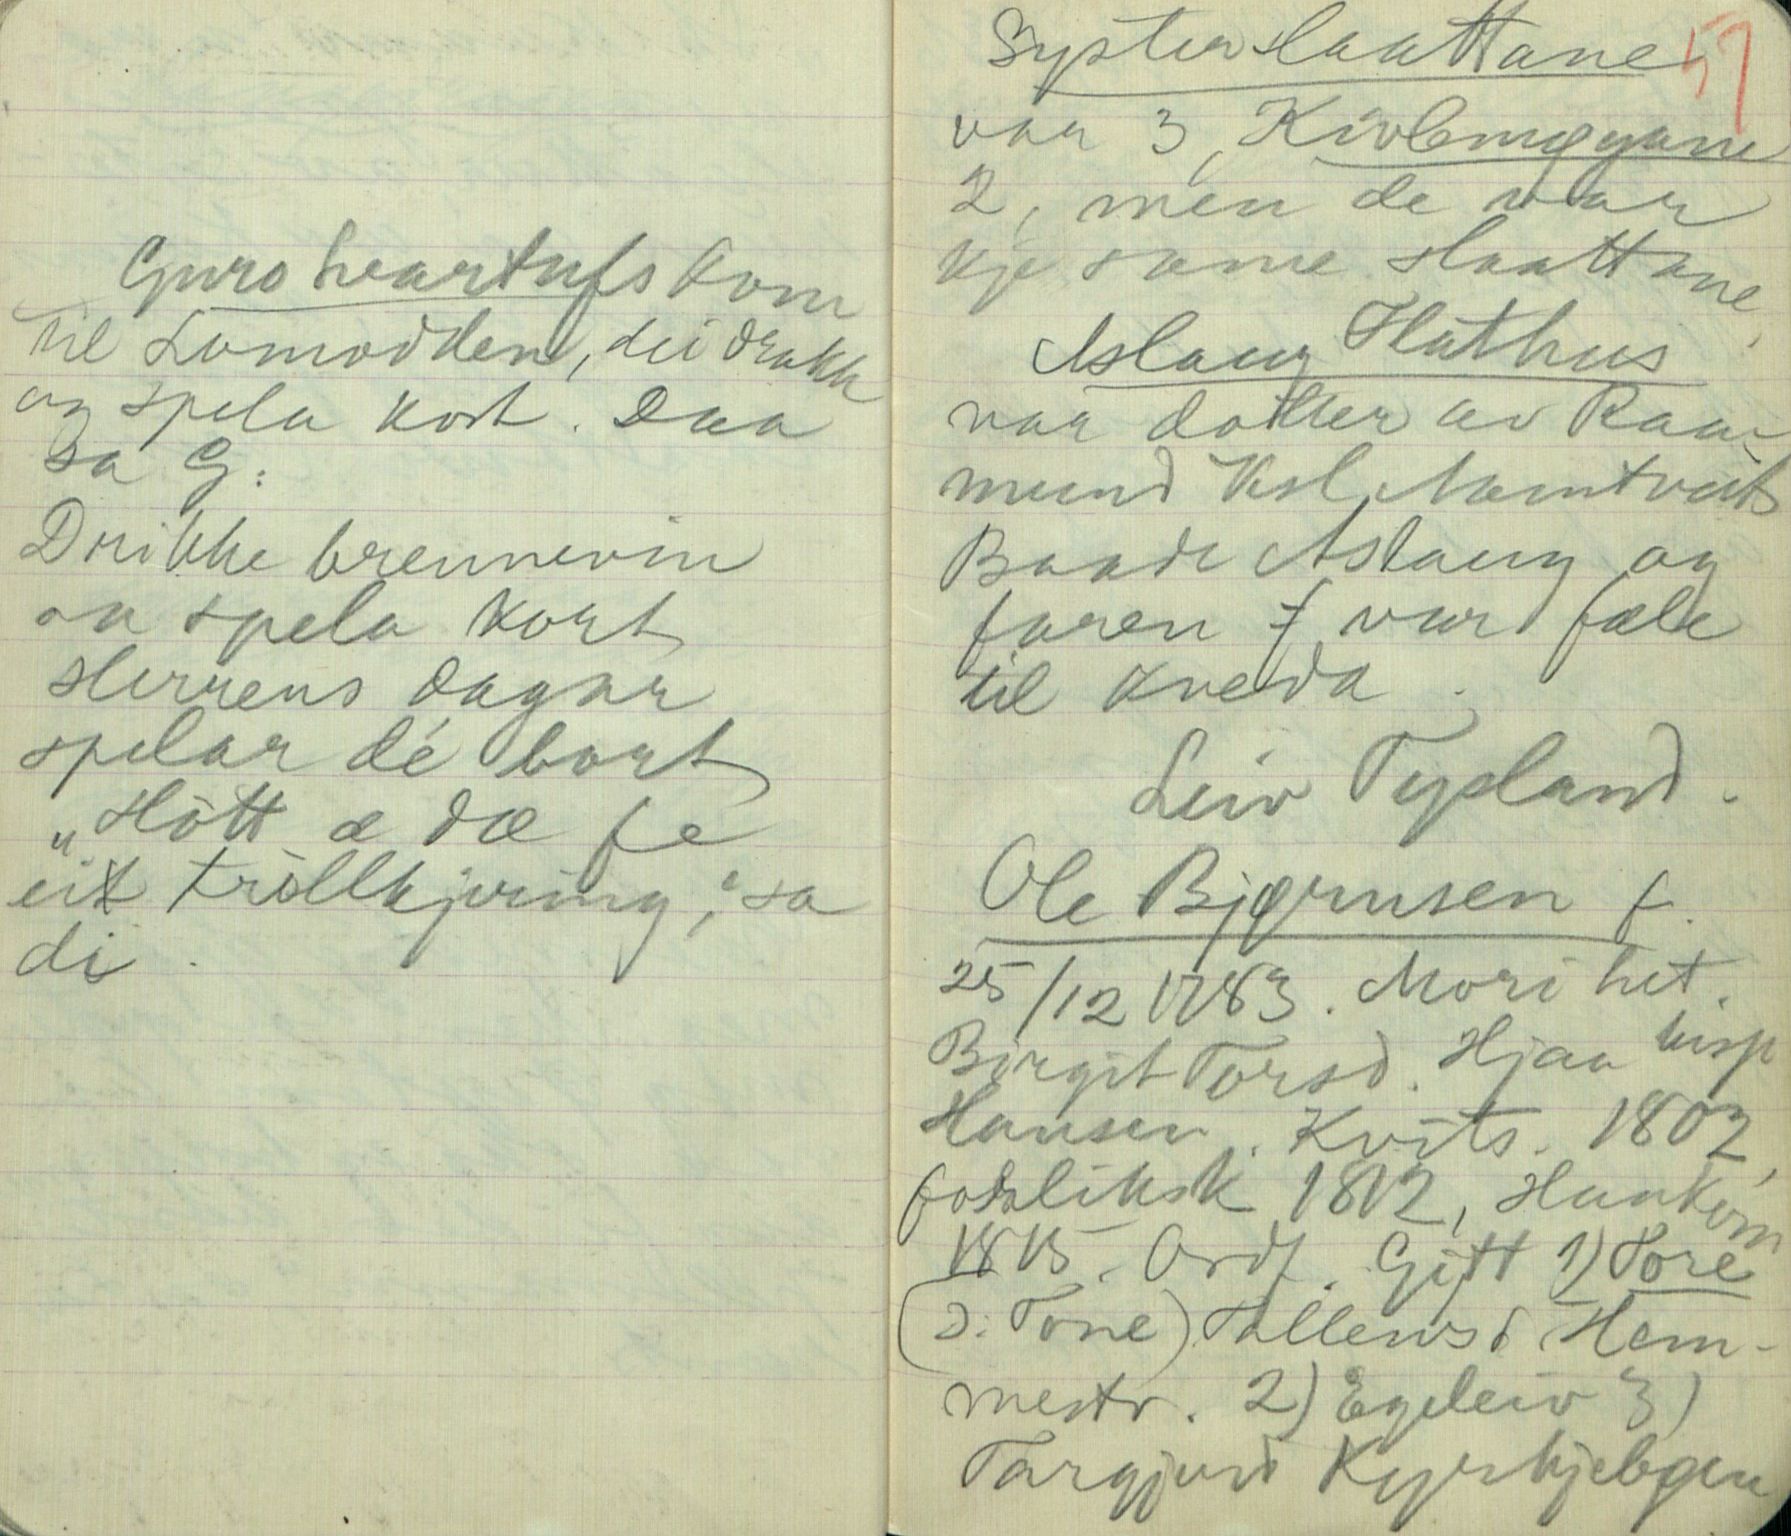 Guro heartufs kom
til Lomodden, dei drakk
og spela kort. Daa
sa G:
Drikke brennevin
aa spela kort
Herrens dagar
spelar dé bort
„Hótt æ dæ fe
eit tröllkjering," sa
di.
Systerslaattane 57
var 3, Kivlemøyane
2, men de var
kje same slaattane.
Aslaug Flathus
var dotter av Raa-
mund Vsl. Nomtveit
Baade Aslaug og
faren f var fæle
til kveda.
Leiv Tysland.
Ole Bjørnsen f.
25/12 1783. Mori het.
Birgit Torsd. Hjaa bisp
Hansen. Kvits. 1802,
1812, Haukom
1815. Ordf. Gift 1) Tore
(ɔ: Tone) Tallevsd Hem-
mestv. 2) Egeleiv 3)
Targjerd Kyrkjebøen